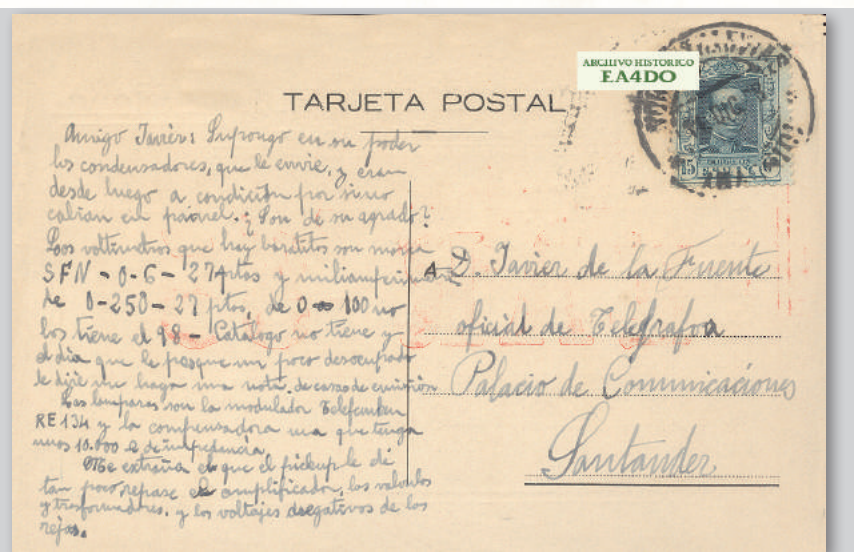 ARCHIVO HISTORICO
EA4DO
TARJETA POSTAL
CORREOS
15
Amigo Javier: Supongo en su poder
los condensadores, que le envie, y eran
desde luego a condición por si no
cabian en pannel. ¿Son de su agrado?
Loos voltimetros que hay baratitos son marca
SFN - 0-6 - 27 ptas y miliamperimetro
de 0-250-27 ptos, de 0 a 100 no
los tiene el 98 - Catalogo no tiene y
el dia que le pesque un poco desocupado
le dije me haga una nota de cosas de emisión
Las lamparas son la modulador Telefunken
RE 134 y la compensadora una que tenga
unos 10.000 Ω de impedencia
Me extraña el que el pickup le dé
tan poco, repase el amplificador, las valvulas
y trasformadores, y los voltajes negativos de los
rejas.
A D. Javier de la Fuente
oficial de Telegrafos
Palacio de Comunicaciones
Santander